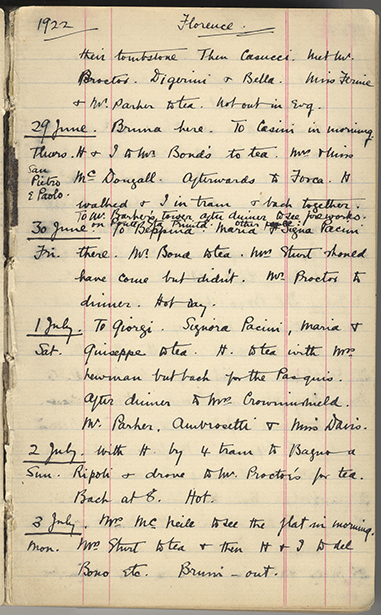 1922 Florence.
their tombstone Then Casucci. Met Mr.
Proctor. Digerini & Bella. Miss
& Mr. Parker to tea. Not out in Evg.
29 June. Bruna here. To Casini in morning.
Thurs. H & I to Mr. Bond's to tea. Mrs & Miss
San Pietro E Paolo. Mc Dougall. Afterwards to H
walked & I in tram & back together.
To Mr. Barker's tower after dinner to see fireworks.
on other people
30 June To Beppina. Maria & Signa Pacini
Fri. there. Mr. Bond to tea. Mrs Sturt should
have come but didn't. Mr. Proctor to
dinner. Hot day.
1 July. To Giorgi. Signora Pacini, Maria &
Sat. Giuseppe to tea. H. to tea with Mrs
Newman but back for the Pasquis.
After dinner to Mrs Crowninshield.
Mr. Parker, Ambrosetti & Miss Davis.
2 July. with H by 4 tram to Bagno a
Sun. Ripoli & drove to Mr. Proctor's for tea.
Back at 8. Hot.
3 July. Mrs. Mc Neile to see the flat in morning.
Mon. Mrs Sturt to tea & then H & I to del
Bono etc. Bruni - out.